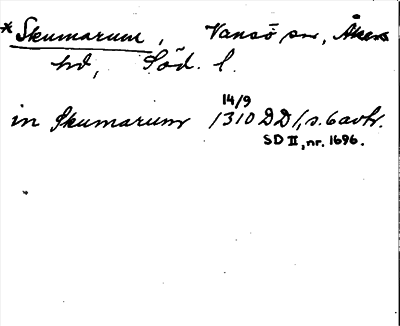 *Skumarum, Vansö sn, Åkers
hd, Söd. l.
14/9
in Skumarum 1310 DD 1, s. 6 avtr.
SD II, nr. 1696.